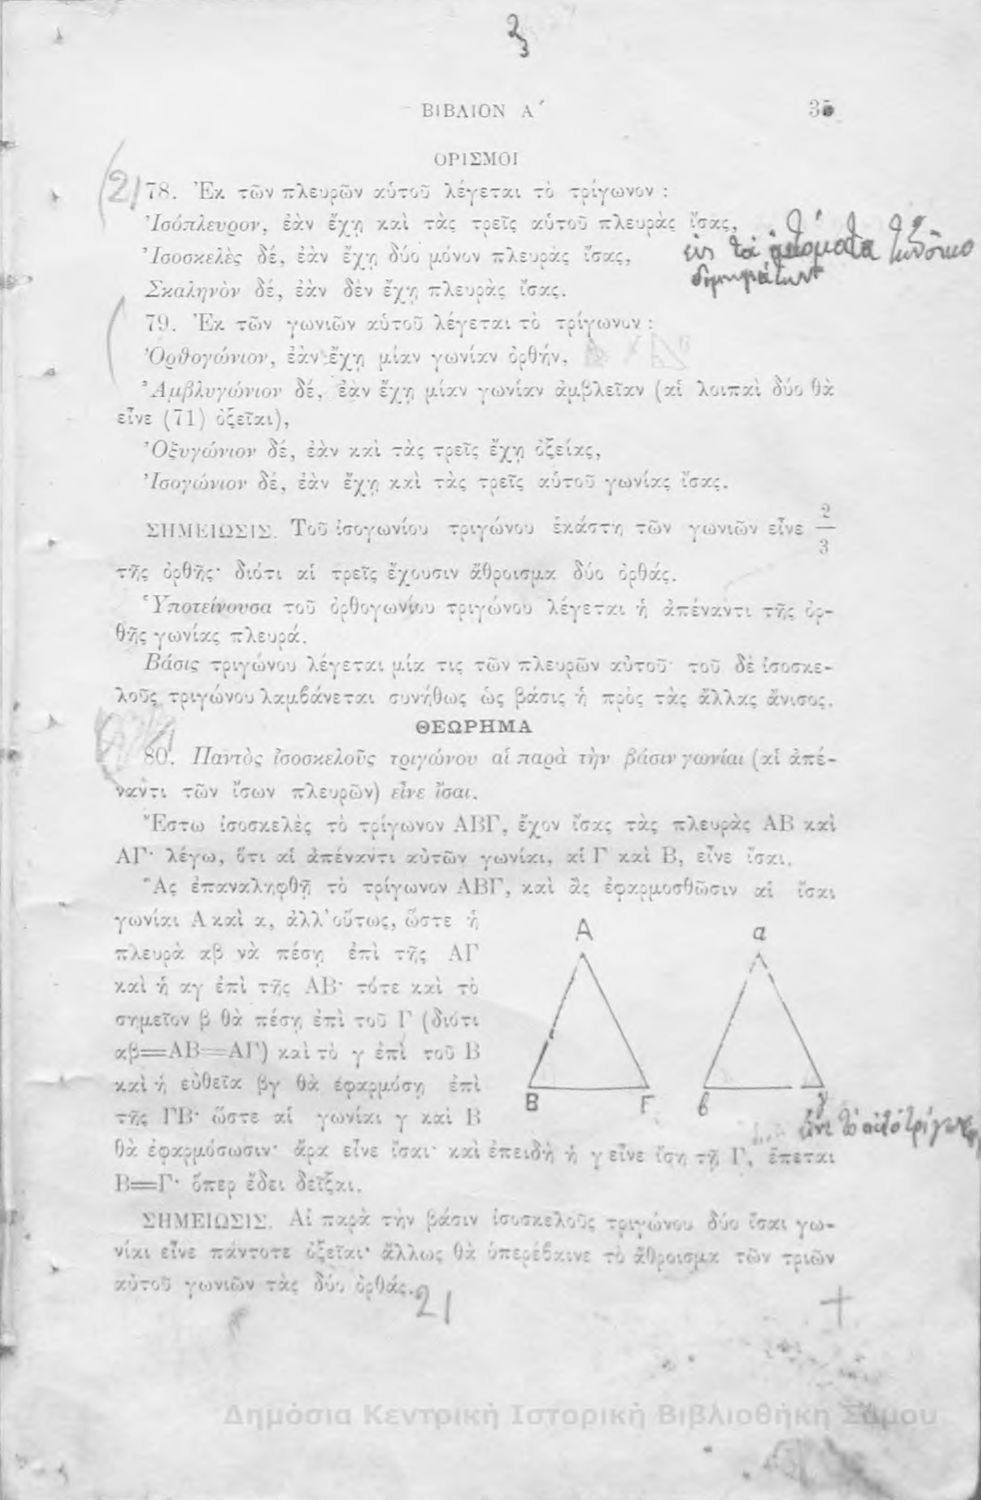 ΒΙΒΛΙΟΝ Α´ 35
ΟΡΙΣΜΟΙ
78. Ἐκ τῶν πλευρῶν αὑτοῦ λέγεται τὸ τρίγωνον :
Ἰσόπλευρον, ἐὰν ἔχῃ καὶ τὰς τρεῖς αὑτοῦ πλευρὰς ἴσας,
Ἰσοσκελὲς δέ, ἐὰν ἔχῃ δύο μόνον πλευρὰς ἴσας,
Σκαληνὸν δέ, ἐὰν δὲν ἔχῃ πλευρὰς ἴσας.
79. Ἐκ τῶν γωνιῶν αὑτοῦ λέγεται τὸ τρίγωνον :
Ὀρθογώνιον, ἐὰν ἔχῃ μίαν γωνίαν ὀρθήν,
Ἀμβλυγώνιον δέ, ἐὰν ἔχῃ μίαν γωνίαν ἀμβλεῖαν (αἱ λοιπαὶ δύο θὰ
εἶνε (71) ὀξεῖαι),
Ὀξυγώνιον δέ, ἐὰν καὶ τὰς τρεῖς ἔχῃ ὀξείας,
Ἰσογώνιον δέ, ἐὰν ἔχῃ καὶ τὰς τρεῖς αὑτοῦ γωνίας ἴσας.
ΣΗΜΕΙΩΣΙΣ. Τοῦ ἰσογωνίου τριγώνου ἑκάστη τῶν γωνιῶν εἶνε 2/3
τῆς ὀρθῆς· διότι αἱ τρεῖς ἔχουσιν ἄθροισμα δύο ὀρθάς.
Ὑποτείνουσα τοῦ ὀρθογωνίου τριγώνου λέγεται ἡ ἀπέναντι τῆς ὀρ-
θῆς γωνίας πλευρά.
Βάσις τριγώνου λέγεται μία τις τῶν πλευρῶν αὑτοῦ· τοῦ δὲ ἰσοσκε-
λοῦς τριγώνου λαμβάνεται συνήθως ὡς βάσις ἡ πρὸς τὰς ἄλλας ἄνισος.
ΘΕΩΡΗΜΑ
80. Παντὸς ἰσοσκελοῦς τριγώνου αἱ παρὰ τὴν βάσιν γωνίαι (αἱ ἀπέ-
ναντι τῶν ἴσων πλευρῶν) εἶνε ἴσαι.
Ἔστω ἰσοσκελὲς τὸ τρίγωνον ΑΒΓ, ἔχον ἴσας τὰς πλευρὰς ΑΒ καὶ
ΑΓ· λέγω, ὅτι αἱ ἀπέναντι αὐτῶν γωνίαι, αἱ Γ καὶ Β, εἶνε ἴσαι.
Ἂς ἐπαναληφθῇ τὸ τρίγωνον ΑΒΓ, καὶ ἂς ἐφαρμοσθῶσιν αἱ ἴσαι
γωνίαι Α καὶ α, ἀλλ' οὕτως, ὥστε ἡ
πλευρὰ αβ νὰ πέσῃ ἐπὶ τῆς ΑΓ
καὶ ἡ αγ ἐπὶ τῆς ΑΒ· τότε καὶ τὸ
σημεῖον β θὰ πέσῃ ἐπὶ τοῦ Γ (διότι
αβ=ΑΒ=ΑΓ) καὶ τὸ γ ἐπὶ τοῦ Β
καὶ ἡ εὐθεῖα βγ θὰ ἐφαρμόσῃ ἐπὶ
τῆς ΓΒ· ὥστε αἱ γωνίαι γ καὶ Β
Α α
Β Γ β γ
θὰ ἐφαρμόσωσιν· ἄρα εἶνε ἴσαι· καὶ ἐπειδὴ ἡ γ εἶνε ἴση τῇ Γ, ἕπεται
Β=Γ· ὅπερ ἔδει δεῖξαι.
ΣΗΜΕΙΩΣΙΣ. Αἱ παρὰ τὴν βάσιν ἰσοσκελοῦς τριγώνου δύο ἴσαι γω-
νίαι εἶνε πάντοτε ὀξεῖαι· ἄλλως θὰ ὑπερέβαινε τὸ ἄθροισμα τῶν τριῶν
αὑτοῦ γωνιῶν τὰς δύο ὀρθάς.
21
Δημόσια Κεντρική Ιστορική Βιβλιοθήκη Σάμου